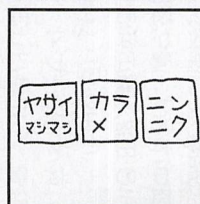 ヤサイ
マシマシ
カラ
メ
ニン
ニク